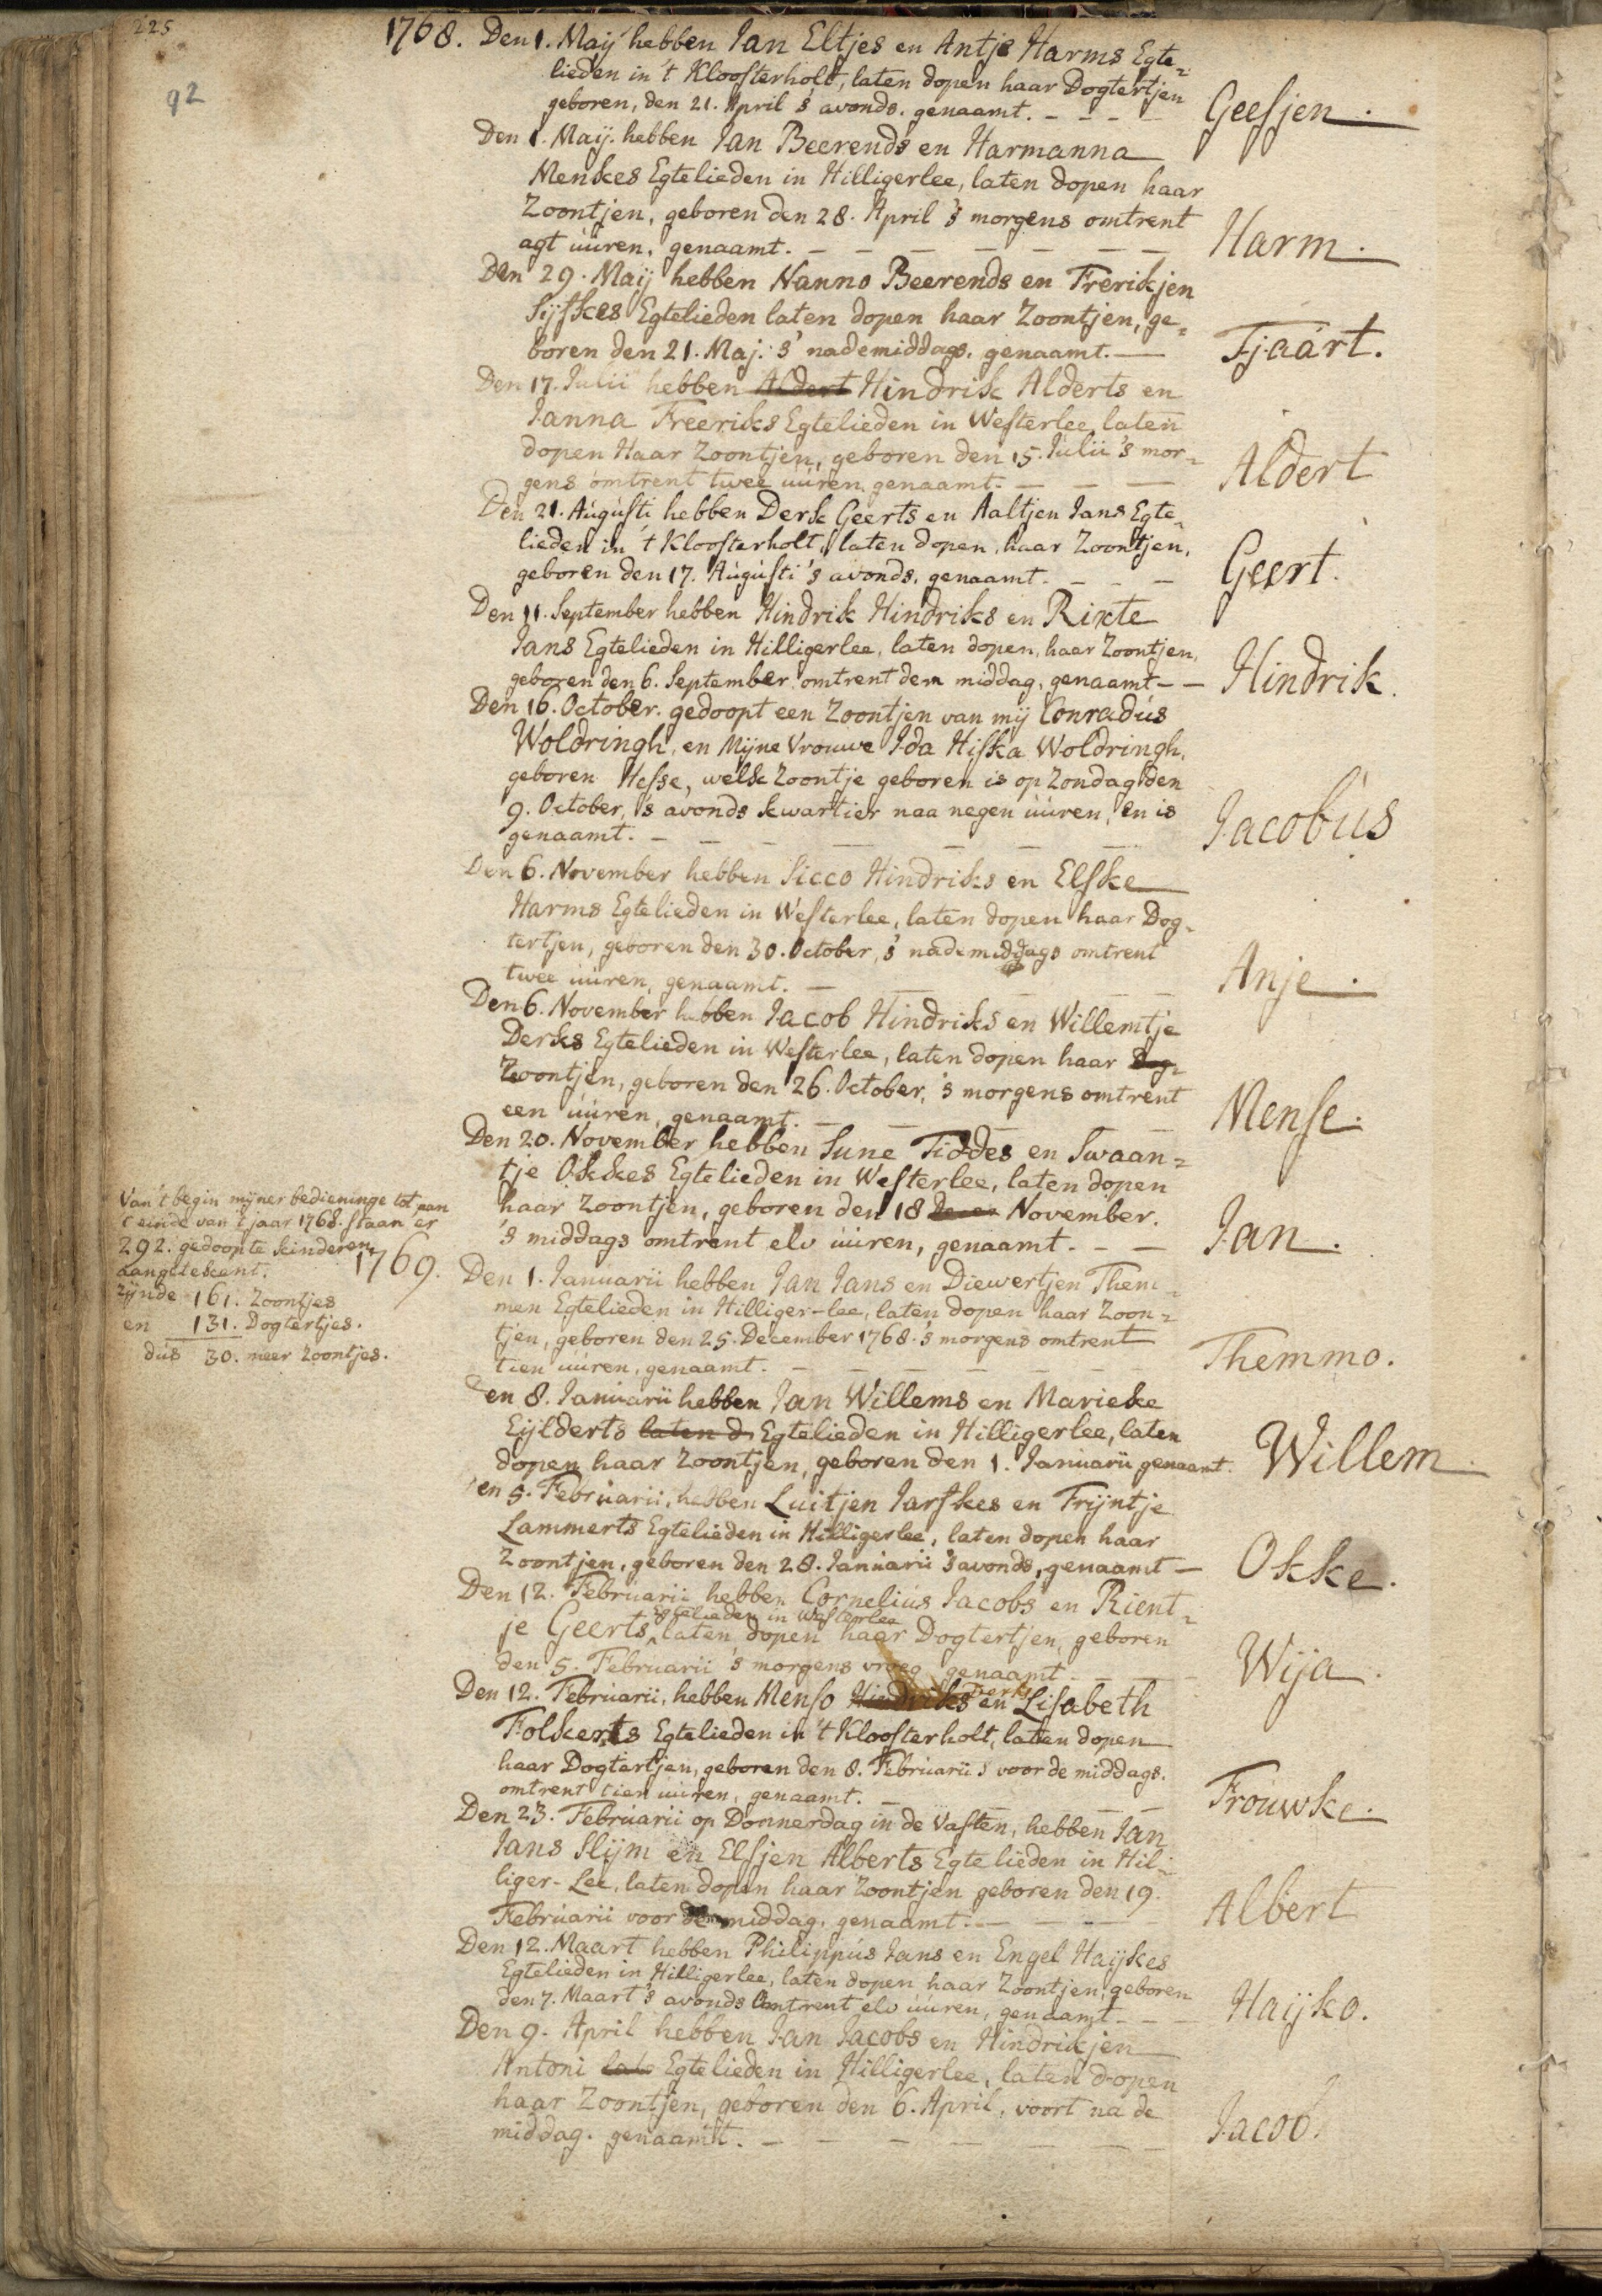 225
92
1768. Den 1. Maij hebben Jan Eltjes en Antje Harms Egte=
lieden in 't Kloosterholt, laten dopen haar Dogtertjen
geboren, den 21. April 's avonds. genaamt. - - - - Geesjen.
Den 1. Maij. hebben Jan Beerends en Harmanna
Menkes Egtelieden in Hilligerlee, laten dopen haar
Zoontjen, geboren den 28. April 's morgens omtrent
agt uúren, genaamt. - - - - - - - Harm.
Den 29. Maij hebben Nanno Beerends en Frerikjen
Sijskes Egtelieden laten dopen haar Zoontjen, ge=
boren den 21. Maj. s' nademiddags. genaamt. — Tjaart.
Den 17. Julii hebben Aldert Hindrik Alderts en
Janna Freeriks Egtelieden in Westerlee, laten
dopen Haar Zoontjen, geboren den 15. Julii 's mor=
gens omtrent twee uúren, genaamt. - - - Aldert
Den 21. Augústi hebben Derk Geerts en Aaltjen Jans Egte=
lieden in 't Kloosterholt, laten dopen, haar Zoontjen,
geboren den 17. Augústi 's avonds. genaamt. - - - Geert.
Den 11. September hebben Hindrik Hindriks en Rixte
Jans Egtelieden in Hilligerlee, laten dopen, haar Zoontjen,
geboren den 6. September omtrent den middag, genaamt - - Hindrik.
Den 16. October. gedoopt een Zoontjen van mij Conradús
Woldringh, en Mijne Vrouwe Ida Hiska Woldringh,
geboren Hesse, welk Zoontje geboren is op Zondag den
9. October, 's avonds kwartier naa negen uúren, en is
genaamt. - - - - - - - Jacobús
Den 6. November hebben Sicco Hindriks en Elske
Harms Egtelieden in Westerlee, laten dopen haar Dog=
tertjen, geboren den 30. October, s' nademiddags omtrent
twee uúren, genaamt. - - - - - Anje.
Den 6. November hebben Jacob Hindriks en Willemtje
Derks Egtelieden in Westerlee, laten dopen haar Dog=
Zoontjen, geboren den 26. October, 's morgens omtrent
een uúren, genaamt. - - - - Mense.
Den 20. November hebben Sune Tiddes en Swaan=
tje Okkes Egtelieden in Westerlee, laten dopen
haar Zoontjen, geboren den 18 November.
's middags omtrent elv uúren, genaamt. - - Jan.
Van 't begin mijner bedieninge tot aan
't einde van 't jaar 1768. staan er
292. gedoopte kinderen
aangetekent.
zijnde 161. Zoontjes
en 131. Dogtertjes.
dús 30. meer Zoontjes.
1769. Den 1. Januarii hebben Jan Jans en Diewertjen Them=
men Egtelieden in Hilliger-lee, laten dopen haar Zoon=
tjen, geboren den 25. December 1768. 's morgens omtrent
tien uúren, genaamt. - - - - - - Themmo.
Den 8. Januarii hebben Jan Willems en Marieke
Eijlderts laten d Egtelieden in Hilligerlee, laten
dopen haar Zoontjen, geboren den 1. Januarii genaamt. Willem.
Den 5. Februarii, hebben Luitjen Jarskes en Trijntje
Lammerts Egtelieden in Hilligerlee, laten dopen haar
Zoontjen, geboren den 28. Januarii 's avonds, genaamt - Okke.
Den 12. Februarii hebben Cornelius Jacobs en Rient=
je Geerts, Egtelieden in Westerlee laten dopen haar Dogtertjen, geboren
den 5. Februarii 's morgens vroeg genaamt. - - Wija.
Den 12. Februarii, hebben Menso Hindriks Derks en Lisabeth
Folkerts Egtelieden in 't Kloosterholt, laten dopen
haar Dogtertjen, geboren den 8. Februarii 's voor de middags.
omtrent tien uúren, genaamt. - - - - Froúwke.
Den 23. Februarii op Donnerdag in de Vasten, hebben Jan
Jans Slijm en Elsjen Alberts Egtelieden in Hil=
liger-Lee, laten dopen haar Zoontjen geboren den 19.
Februarii voor de middag, genaamt. - - - Albert
Den 12. Maart hebben Philippús Jans en Engel Haijkes
Egtelieden in Hilligerlee, laten dopen haar Zoontjen, geboren
den 7. Maart 's avonds Omtrent elv uúren, genaamt. - - - Haijko.
Den 9. April hebben Jan Jacobs en Hindrikjen
Antoni late Egtelieden in Hilligerlee, laten dopen
haar Zoontjen, geboren den 6. April, voort na de
middag. genaamt. - - - - - - - Jacob.